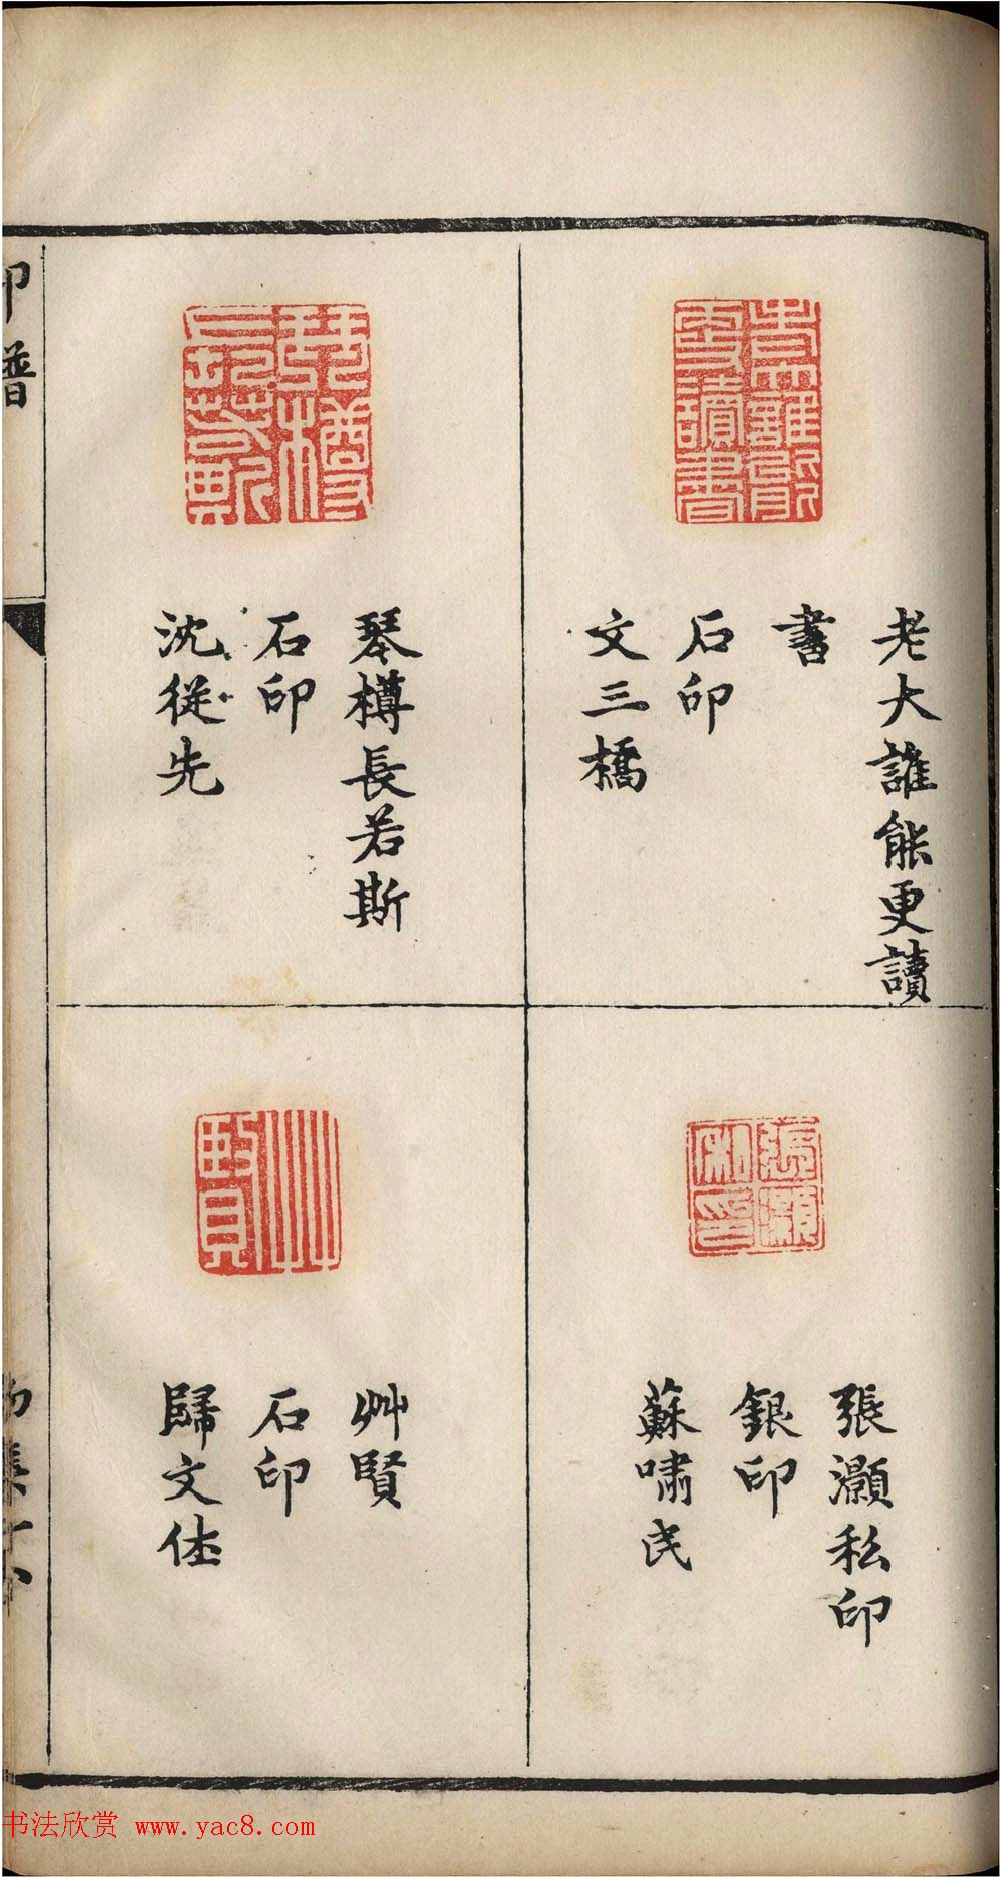 老大誰能更讀
書
石印
文三橋
琴樽長若斯
石印
沈從先
張灝私印
銀印
蘇嘯民
艸賢
石印
歸文休
印譜
书法欣赏 www.yac8.com